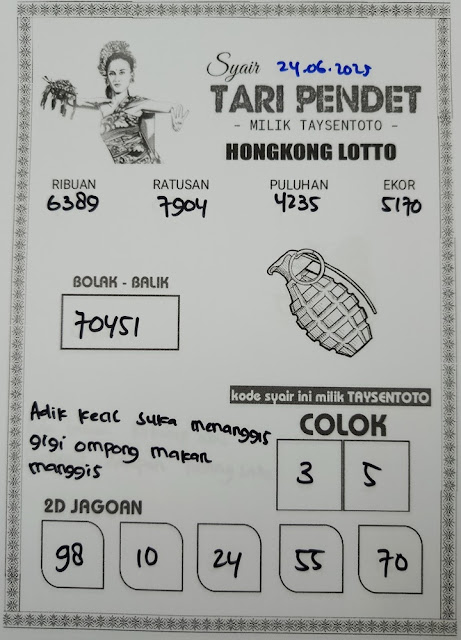 Syair 24.06.2025
TARI PENDET
- MILIK TAYSENTOTO -
HONGKONG LOTTO
RIBUAN RATUSAN PULUHAN EKOR
6389 7904 4235 5170
BOLAK - BALIK
70451
kode syair ini milik TAYSENTOTO
Adik kecil suka menanggis
gigi ompong makan
manggis
COLOK
3 5
2D JAGOAN
98 10 24 55 70